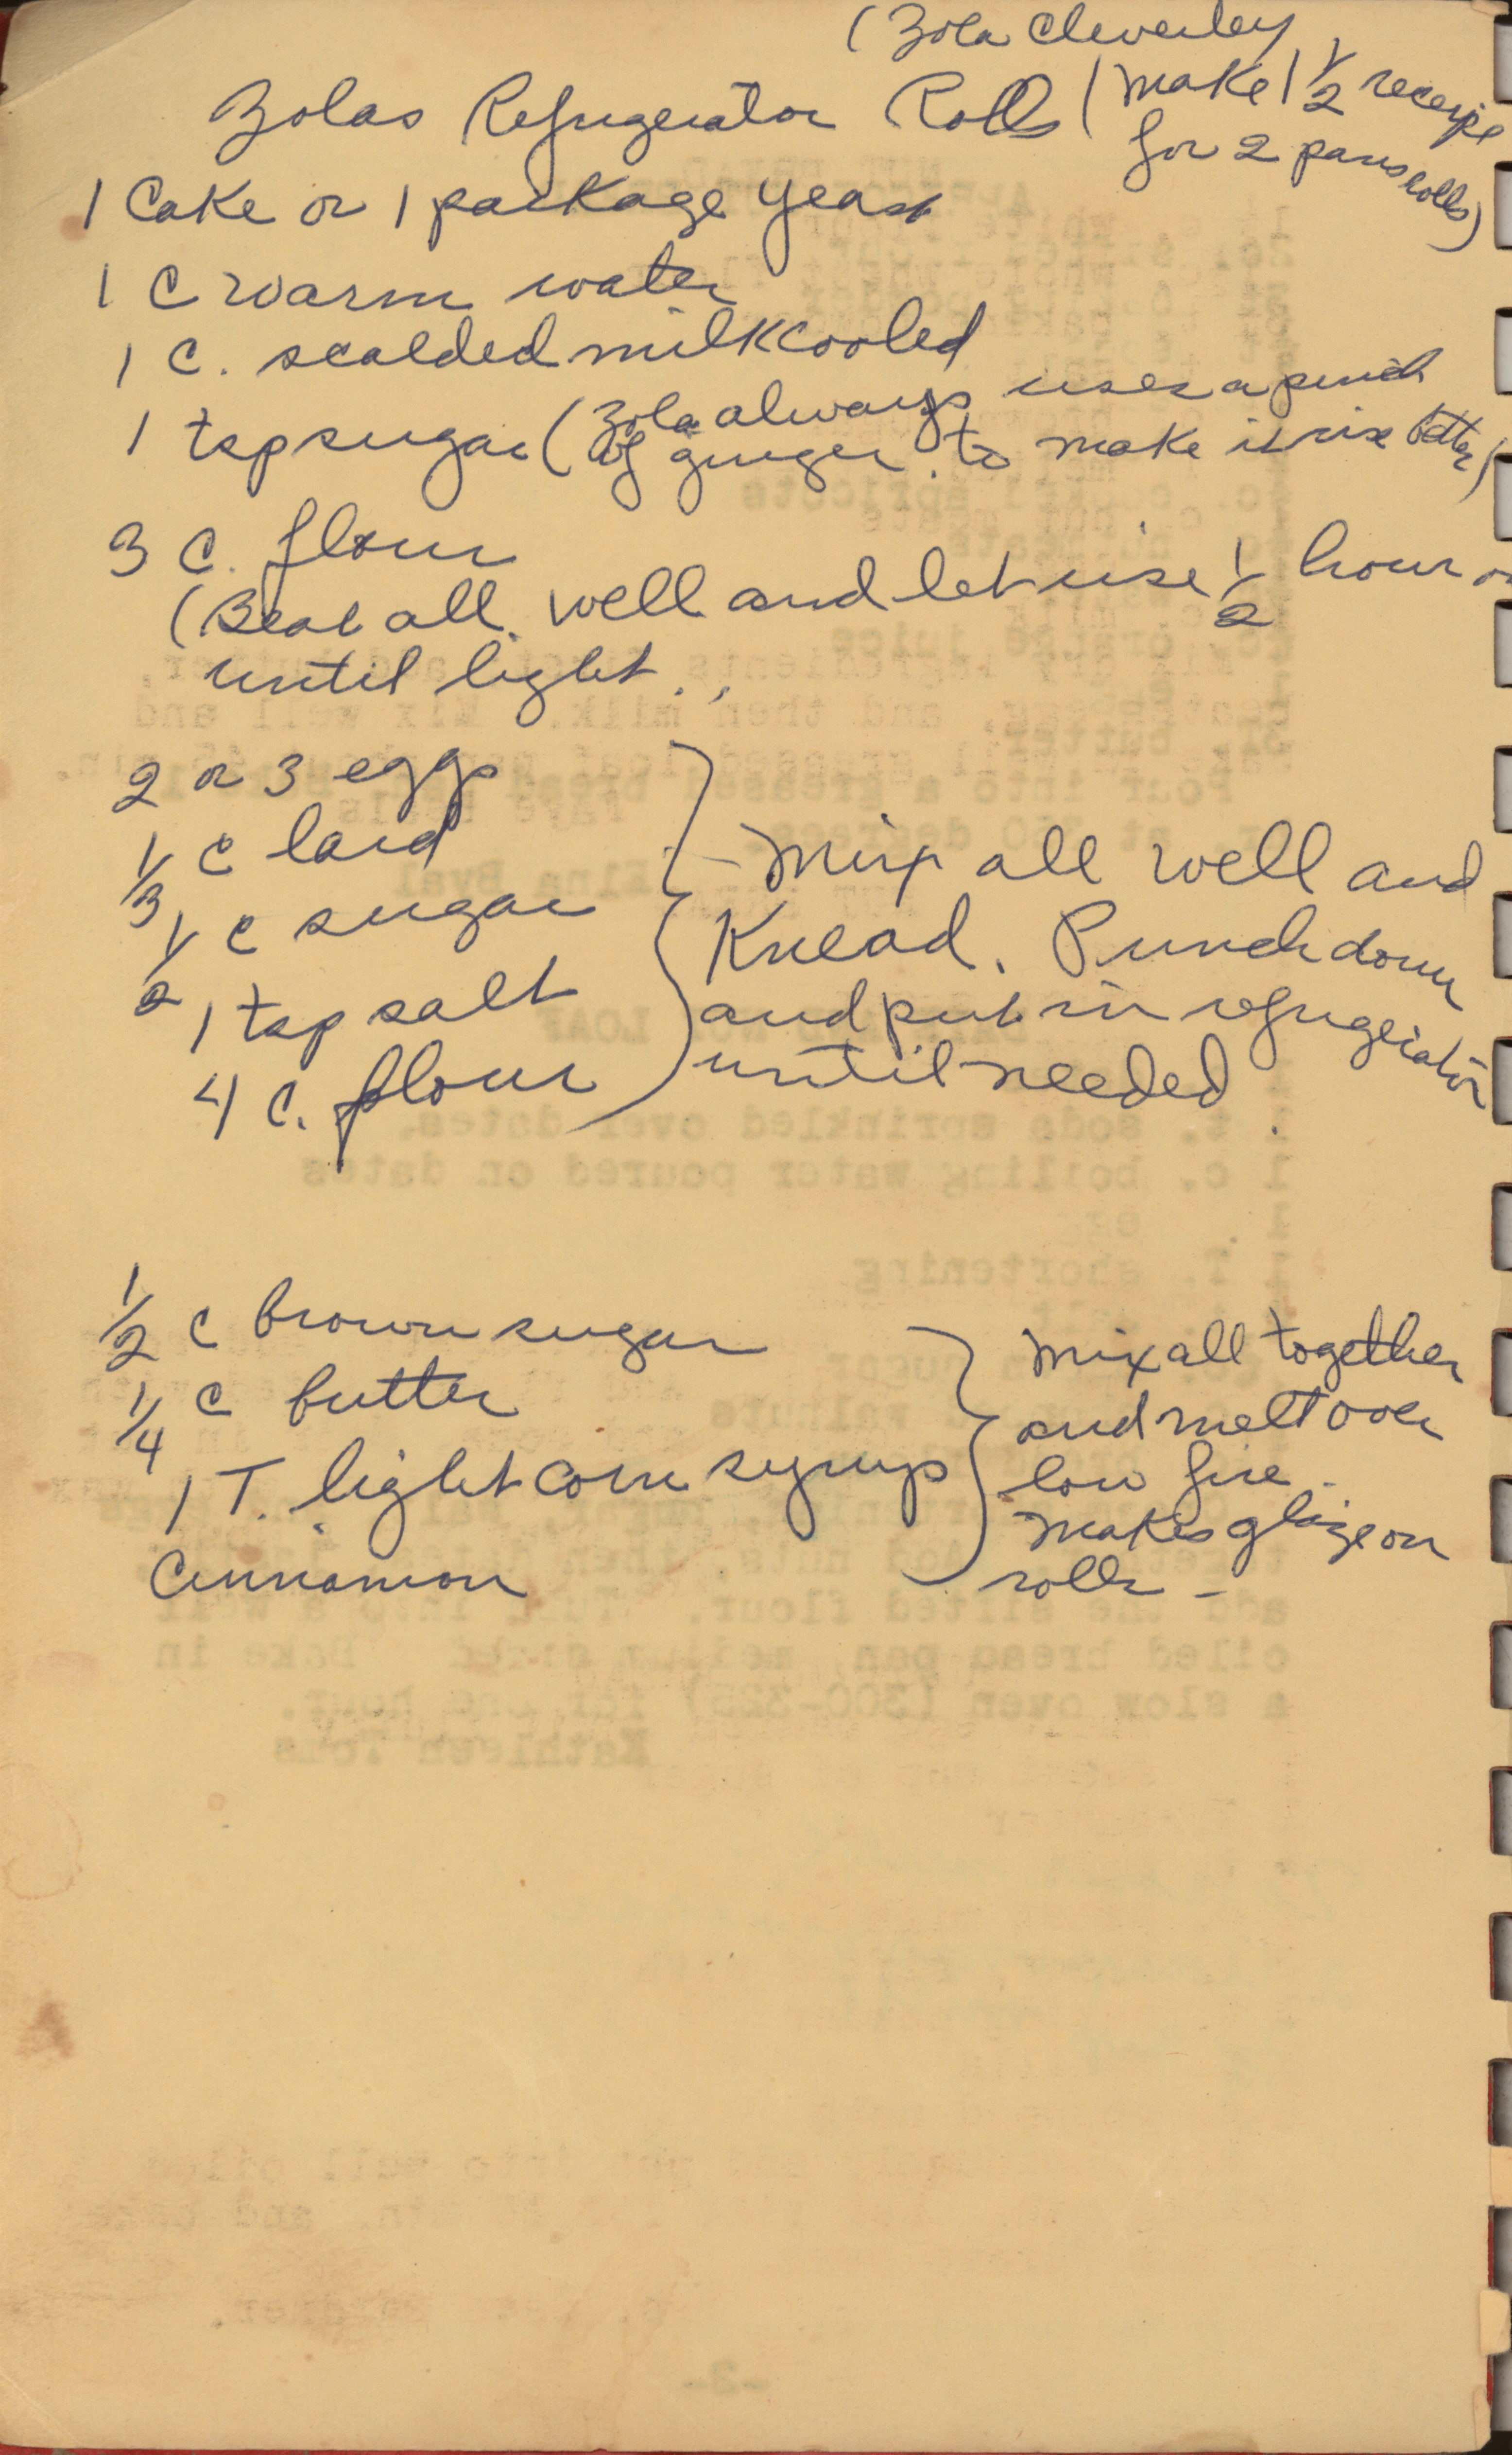 (Zola Cleverley
Zolas Refrigerator Rolls (make 1 1/2 receipe
for 2 pans rolls)
1 Cake or 1 package yeast
1 C warm water
1 C. scalded milk cooled
1 tsp sugar (Zola always uses a pinch
of ginger to make it rise better)
3 C. flour
(Beat all well and let rise 1/2 hour or
until light.
2 or 3 eggs
1/3 C lard
1/2 C sugar
1 tsp salt
4 C. flour
Mix all well and
Knead. Punch down
and put in refrigerator
until needed.
1/2 C brown sugar
1/4 C butter
1 T. light corn syrup
Cinnamon
Mix all together
and melt over
low fire.
Makes glaze on
rolls -